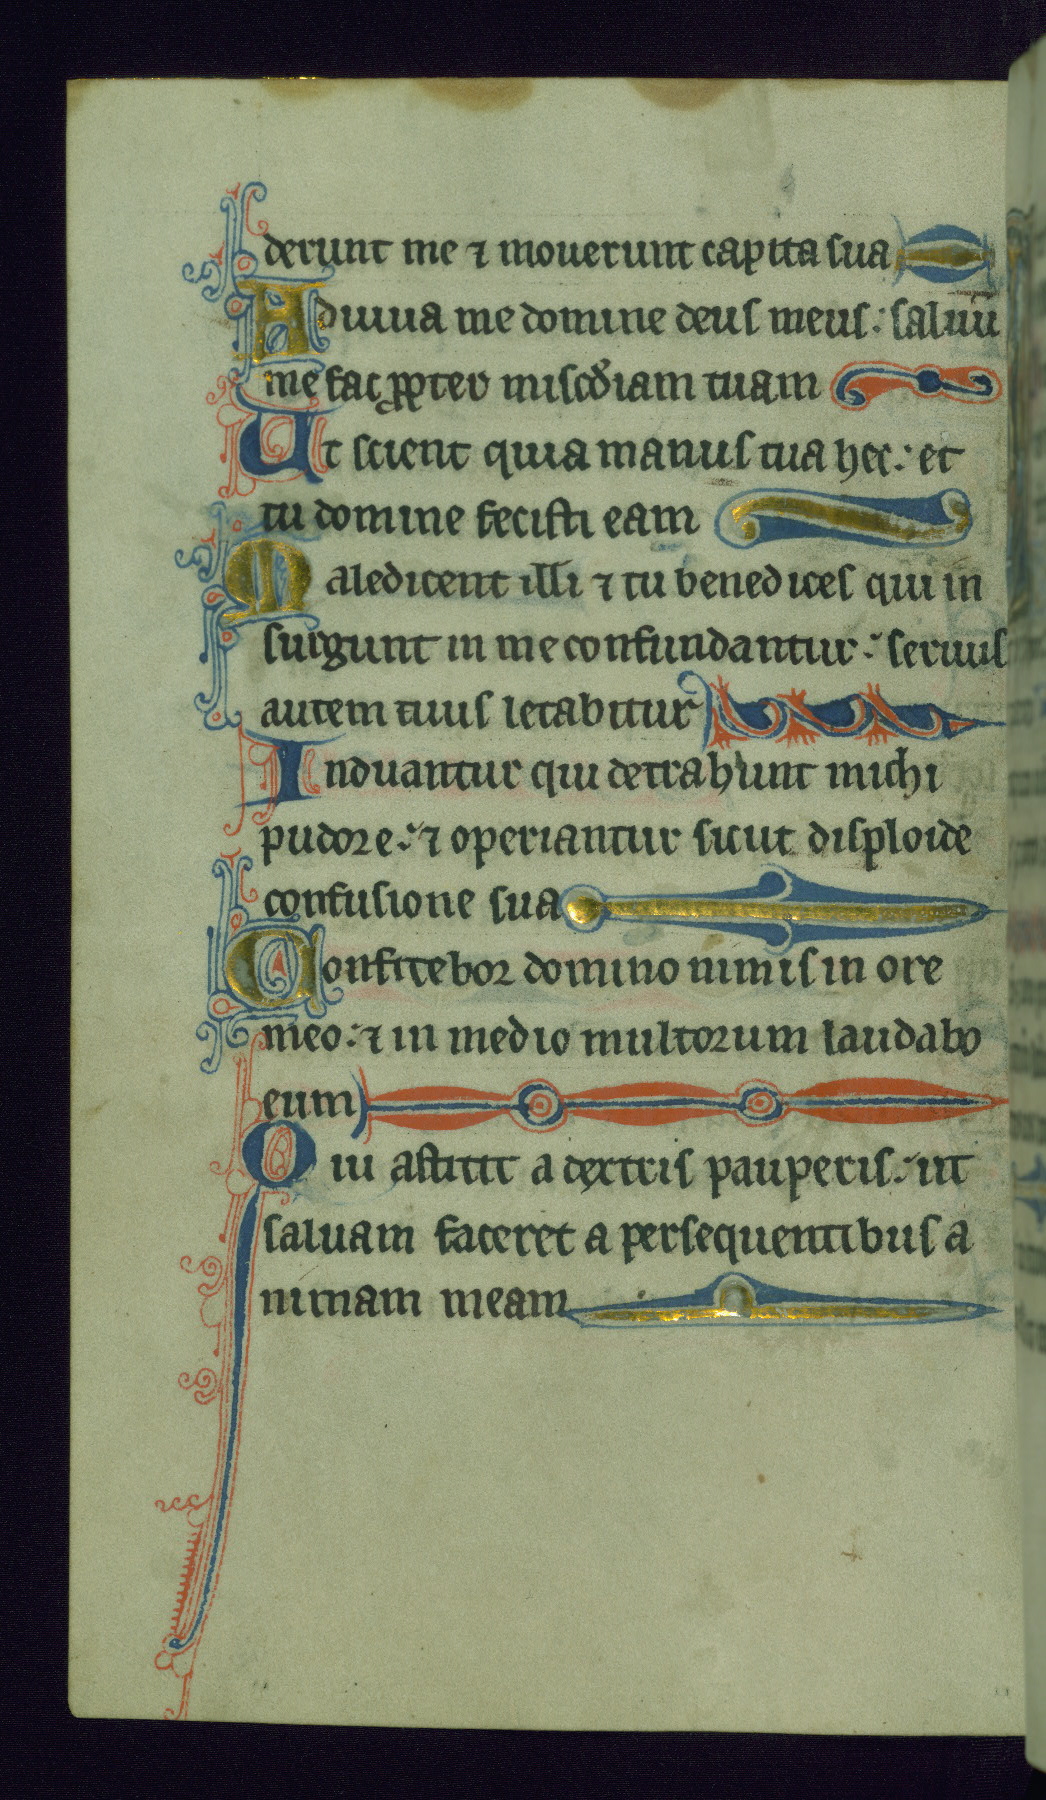 derunt me ⁊ mouerunt capita sua
Adiuua me domine deus meus: saluū
me fac ꝓpter miscd̄iam tuam
Ut scient quia manus tua hec: et
tu domine fecisti eam
Maledicent illi ⁊ tu benedices qui in
surgunt in me confundantur: seruus
autem tuus letabitur
Induantur qui detrahunt michi
pudore: ⁊ operiantur sicut disploide
confusione sua
Confitebor domino nimis in ore
meo: ⁊ in medio multorum laudabo
eum
Qui astitit a dextris pauperis: ut
saluam faceret a persequentibus a
nimam meam